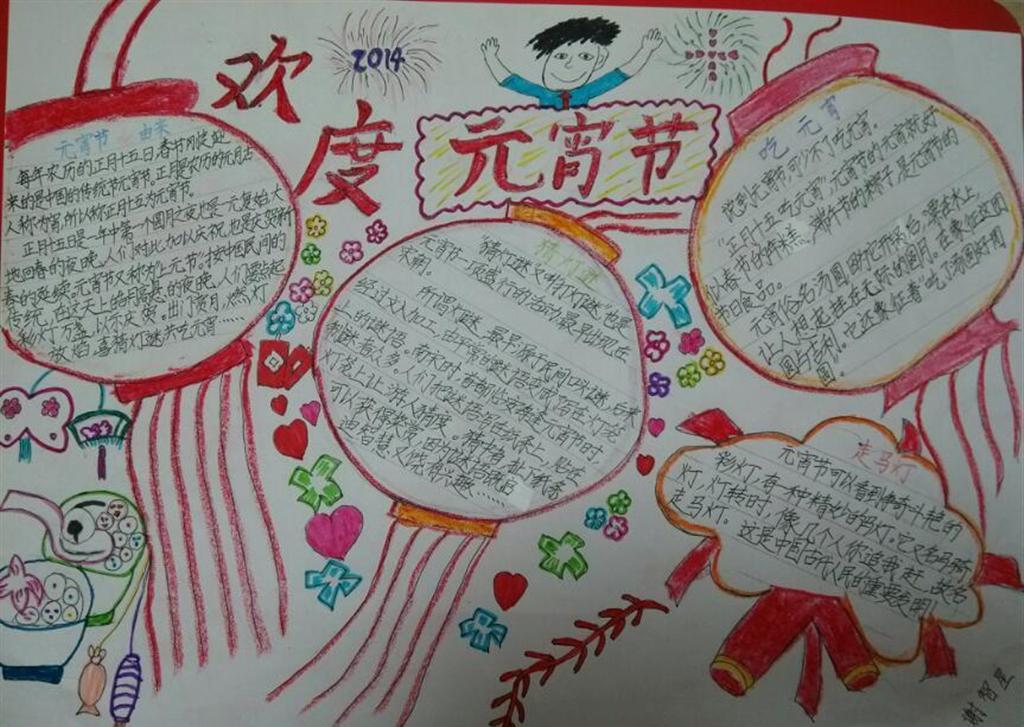 欢度
2014
元宵节
元宵节 由来
每年农历的正月十五日,春节刚过,迎
来的是中国的传统节元宵节。正月是农历的元月,古
人称"宵",所以称正月十五为元宵节。
正月十五日是一年中第一个圆月之夜,也是一元复始,大
地回春的夜晚,人们对此加以庆祝,也是庆贺新
春的延续。元宵节又称为"上元节"。按中国民间的
传统,在这天上皓月高悬的夜晚,人们要点起
彩灯万盏,以示庆贺。出门赏月、燃灯
放焰、喜猜灯谜、共吃元宵……
猜灯谜
猜灯谜又叫"打灯谜",也是
元宵节一项盛行的活动,最早出现在
宋朝。
所谓灯谜,最早源于民间口头谜,后来
经过文人加工,
人们把谜语写在纸条上,贴在
灯笼上让游人猜度。猜中者
可以获得奖赏,因为谜语既启
迪智慧又饶有兴趣……
吃元宵
说到元宵节可少不了吃元宵。
"正月十五吃元宵",元宵节的元宵就好
小春节的年糕,端午节的粽子,是元宵节的
节日食品。
元宵俗名:汤圆,
让人想起挂在无际的圆月。在象征这团
圆与吉利。它还象征着吃了汤圆好团
圆。
走马灯
元宵节可以看到争奇斗艳的
彩灯,有一种精妙的吗灯。它又名马所
灯,灯转时,像几个人你追我赶,故名
走马灯。
这是中国古代人民的重要发明
谢智星